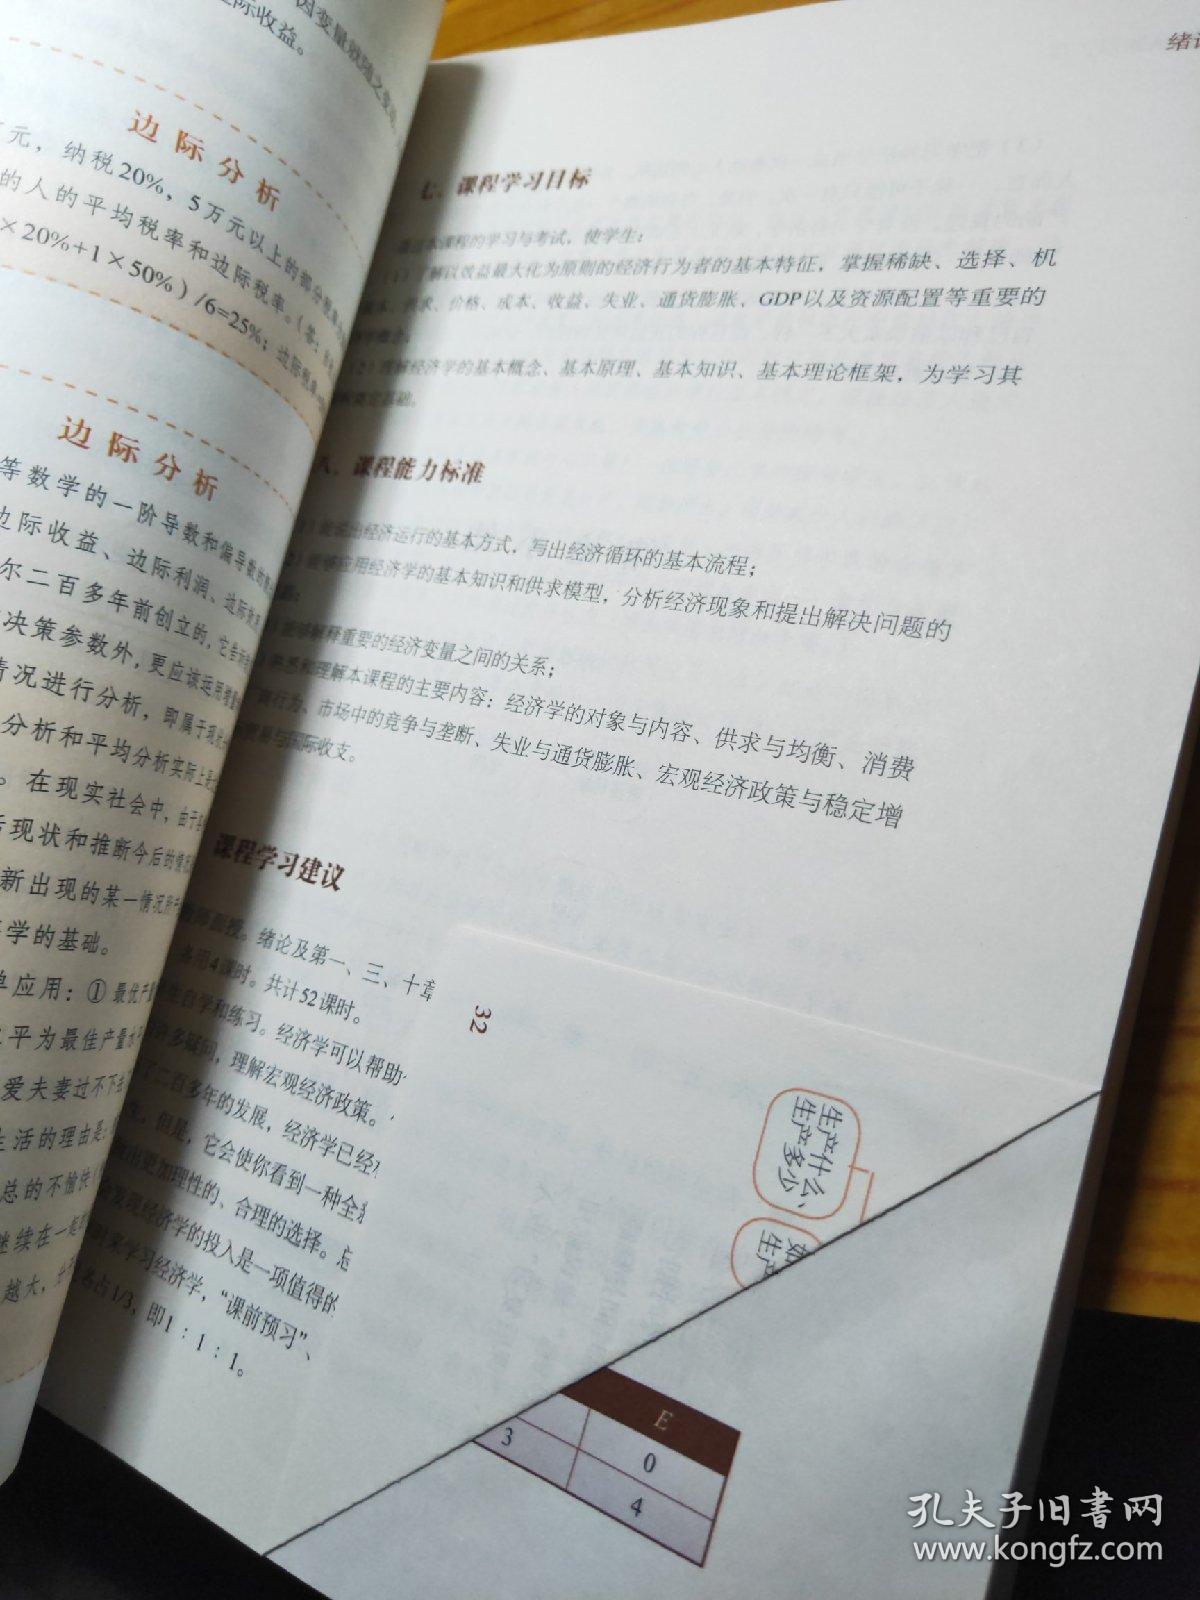 因变量就随之变
际收益。
边际分析
元，纳税20%，5万元以上的部分
的人的平均税率和边际税率。（答：
×20%+1×50%）/6=25%；边际税率
边际分析
等数学的一阶导数和偏导数的
边际收益、边际利润、边际效
尔二百多年前创立的，它告诉
决策参数外，更应该运用增量
情况进行分析，即属于现
分析和平均分析实际上是
。在现实社会中，由于
现状和推断今后的情况
新出现的某一情况所
学的基础。
单应用：①最优产量
平为最佳产量水
爱夫妻过不下去
生活的理由是：
总的不愉快
继续在一起
越大，
绪论
七、课程学习目标
通过本课程的学习与考试，使学生：
（1）了解以效益最大化为原则的经济行为者的基本特征，掌握稀缺、选择、机
成本、供求、价格、成本、收益、失业、通货膨胀、GDP以及资源配置等重要的
概念。
（2）理解经济学的基本概念、基本原理、基本知识、基本理论框架，为学习其
奠定基础。
八、课程能力标准
（1）能说出经济运行的基本方式，写出经济循环的基本流程；
（2）能够应用经济学的基本知识和供求模型，分析经济现象和提出解决问题的
；
）能够解释重要的经济变量之间的关系；
熟悉和理解本课程的主要内容：经济学的对象与内容、供求与均衡、消费
行为、市场中的竞争与垄断、失业与通货膨胀、宏观经济政策与稳定增
贸易与国际收支。
课程学习建议
教师面授。绪论及第一、三、十章
各用4课时。共计52课时。
学生自学和练习。经济学可以帮助
许多疑问，理解宏观经济政策。
了二百多年的发展，经济学已经
但是，它会使你看到一种全
做出更加理性的、合理的选择。
会发现经济学的投入是一项值得的
时来学习经济学，“课前预习”、
各占1/3，即1：1：1。
32
生产什么、
生产多少
如
生产
E
3
0
4
孔夫子旧书网
www.kongfz.com